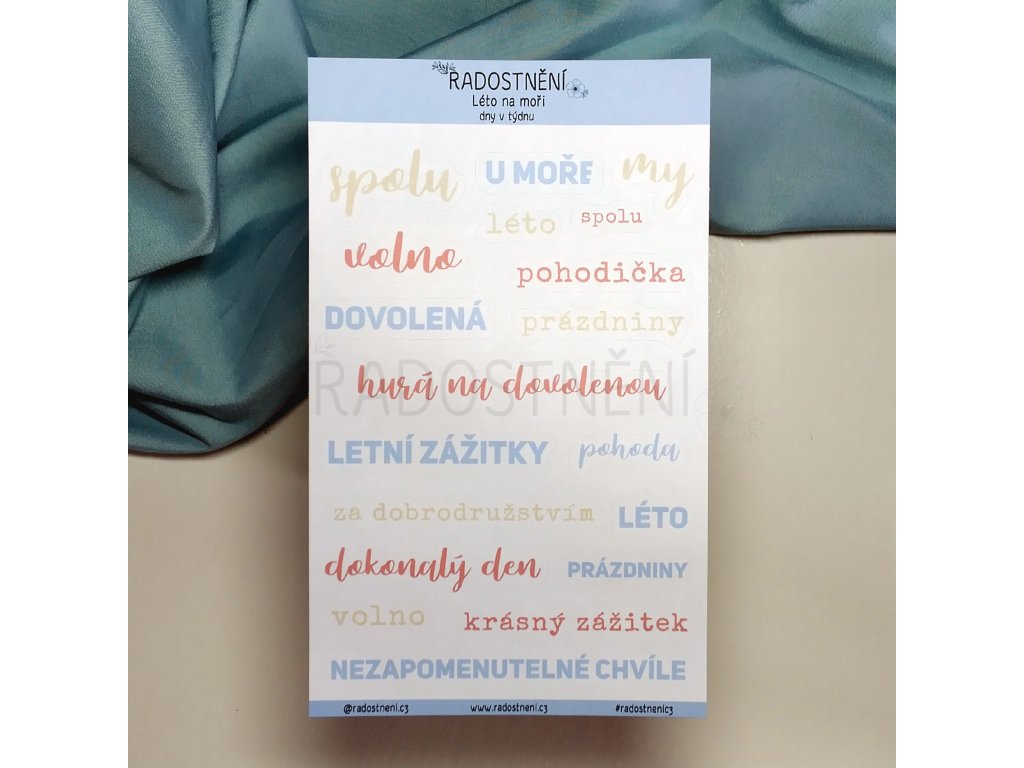 RADOSTNĚNÍ
Léto na moři
dny v týdnu
spolu U MOŘE my
léto spolu
volno
pohodička
DOVOLENÁ prázdniny
RADOSTNĚNÍ
hurá na dovolenou
LETNÍ ZÁŽITKY pohoda
za dobrodružstvím LÉTO
dokonalý den PRÁZDNINY
volno krásný zážitek
NEZAPOMENUTELNÉ CHVÍLE
@radostneni.cz www.radostneni.cz #radostnenicz